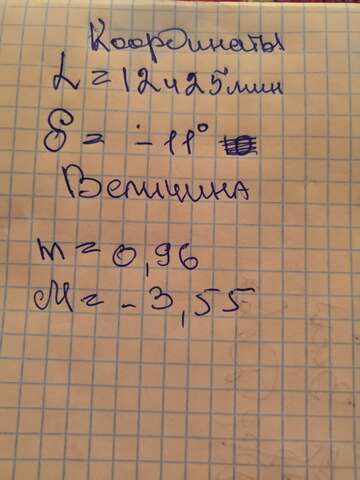 Координаты
L = 12ч 25 мин
δ = -11°
Величина
m = 0,96
M = -3,55